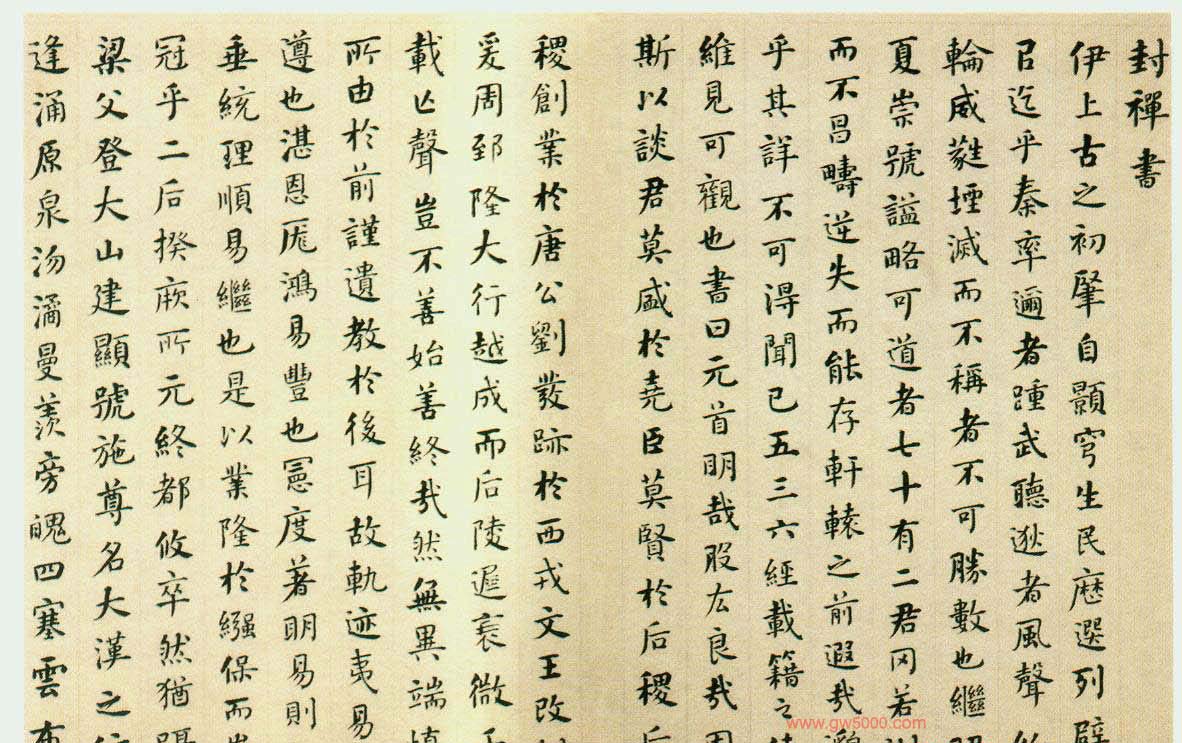 封禪書
伊上古之初肇自顥穹生民厯選列辟
㠯迄乎秦率邇者踵武聽逖者風聲
輪威蕤堙滅而不稱者不可勝數也繼
夏崇號謚略可道者七十有二君罔若
而不昌疇逆失而能存軒轅之前遐哉
乎其詳不可得聞已五三六經載籍之
維見可觀也書曰元首明哉股厷良哉因
斯以談君莫盛於堯臣莫賢於后稷后
稷創業於唐公劉發跡於西戎文王改
爰周郅隆大行越成而后陵遲衰微
載亡聲豈不善始善終哉然無異端慎
所由於前謹遺教於後耳故軌迹夷易
遵也湛恩厖鴻易豐也憲度著明易則
垂統理順易繼也是以業隆於繈保而
冠乎二后揆厥所元終都攸卒然猶躡
梁父登大山建顯號施尊名大漢之
逢涌原泉沕潏曼羨旁魄四塞雲布
www.gw5000.com